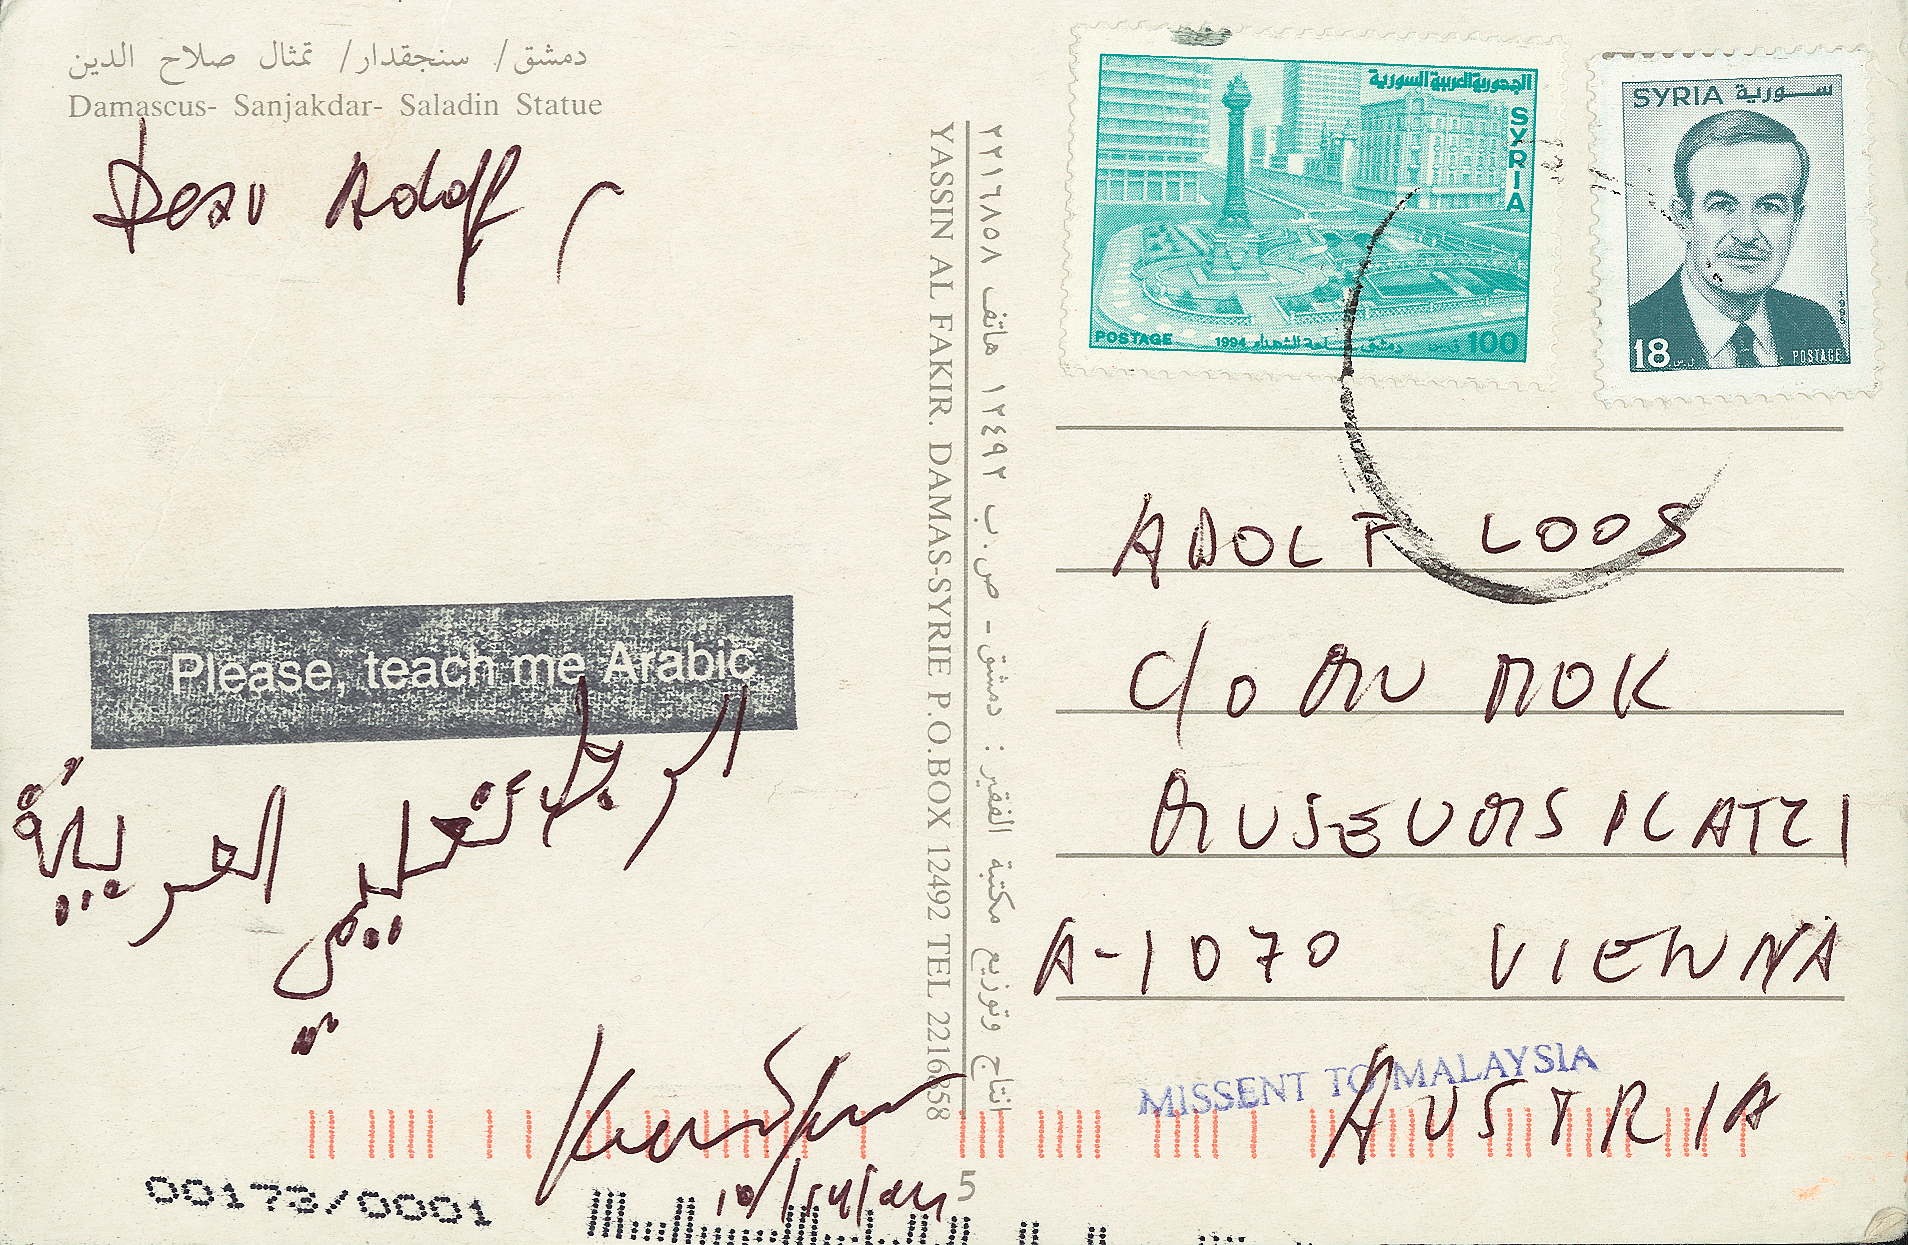 دمشق/ سنجقدار/ تمثال صلاح الدين
Damascus- Sanjakdar- Saladin Statue
Dear Adolf,
Please, teach me Arabic
العربية
YASSIN AL FAKIR. DAMAS-SYRIE P.O.BOX 12492 TEL 2216858
انتاج وتوزيع مكتبة الفقير : دمشق - ص.ب ١٢٤٩٢ هاتف ٢٢١٦٨٥٨
الجمهورية العربية السورية
SYRIA
POSTAGE
1994
100
SYRIA سورية
1995
18
POSTAGE
ADOLF LOOS
C/O MU MOK
MUSEUMSPLATZ 1
A-1070 VIENNA
MISSENT TO MALAYSIA
AUSTRIA
00173/0001
5